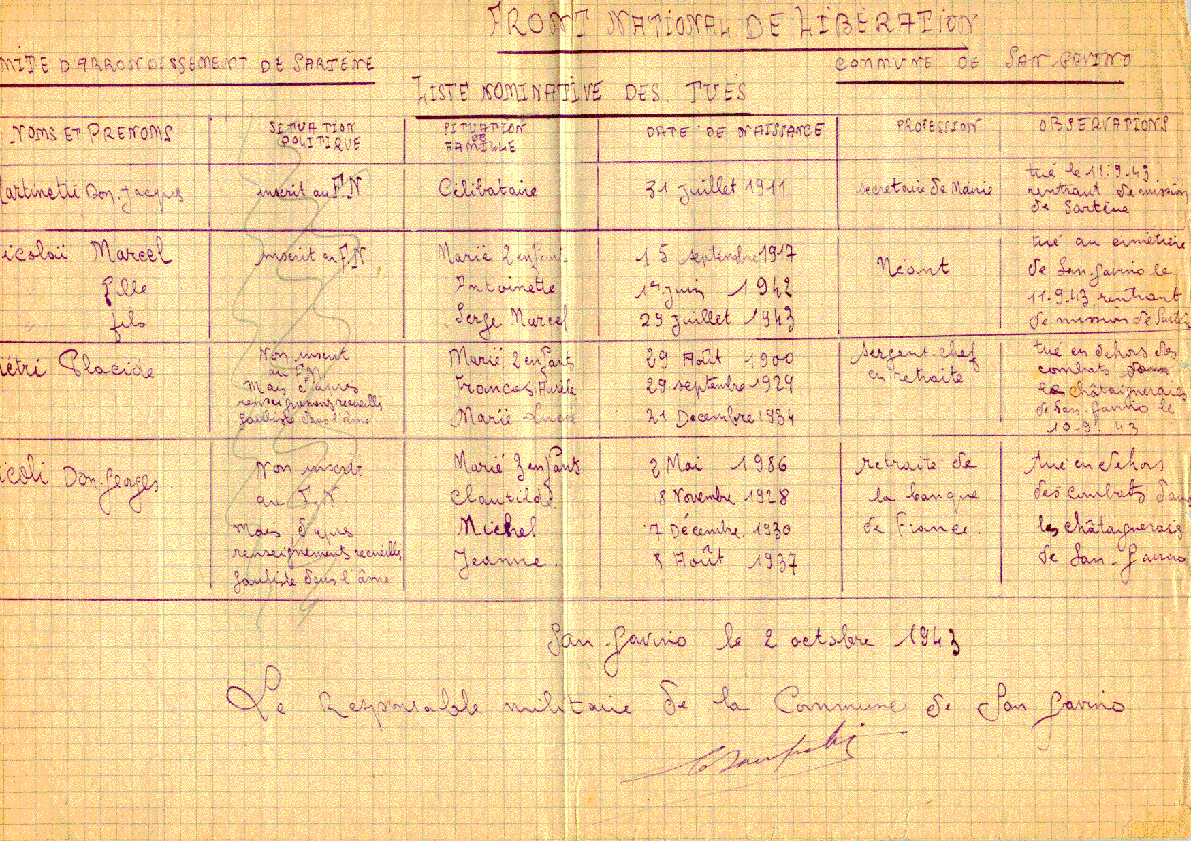 FRONT NATIONAL DE LIBÉRATION
MITE D'ARRONDISSEMENT DE SARTENE
COMMUNE DE SAN-GAVINO
LISTE NOMINATIVE DES TUÉS
NOMS ET PRENOMS SITUATION POLITIQUE SITUATION DE FAMILLE DATE DE NAISSANCE PROFESSION OBSERVATIONS
artinetti Don. Jacques inscrit au F.N Célibataire 31 Juillet 1911 Secretaire de Mairie tué le 11.9.43
rentrant de mission
de Sartène
icolaï Marcel inscrit au F.N Marié 2 enfants 15 septembre 1917 Néant tué au cimetière
fille Antoinette 1er juin 1942 de San-Gavino le
fils Serge Marcel 29 Juillet 1943 11-9.43 rentrant
de mission de
iétri Placide Non inscrit Marié 2 enfants 29 Août 1900 Sergent chef tué en dehors des
au F.N 29 septembre 1929 en retraite combats dans
Mais d'apres Marie 21 Decembre 1934 les châtaigneraies
renseignements recueillis de San-Gavino le
Gaulliste dans l'âme 10.9.43
icoli Don. Georges Non inscrit Marié 3 enfants 2 Mai 1986 retraité de tué en dehors
au F.N Clautilde 8 Novembre 1928 la banque des combats dans
Mais d'apres Michel 7 Décembre 1930 de France. les châtaigneraies
renseignements recueillis Jeanne. 8 Août 1937 de San-Gavino
Gaulliste dans l'âme
San-Gavino le 2 octobre 1943
Le Responsable militaire de la Commune de San Gavino